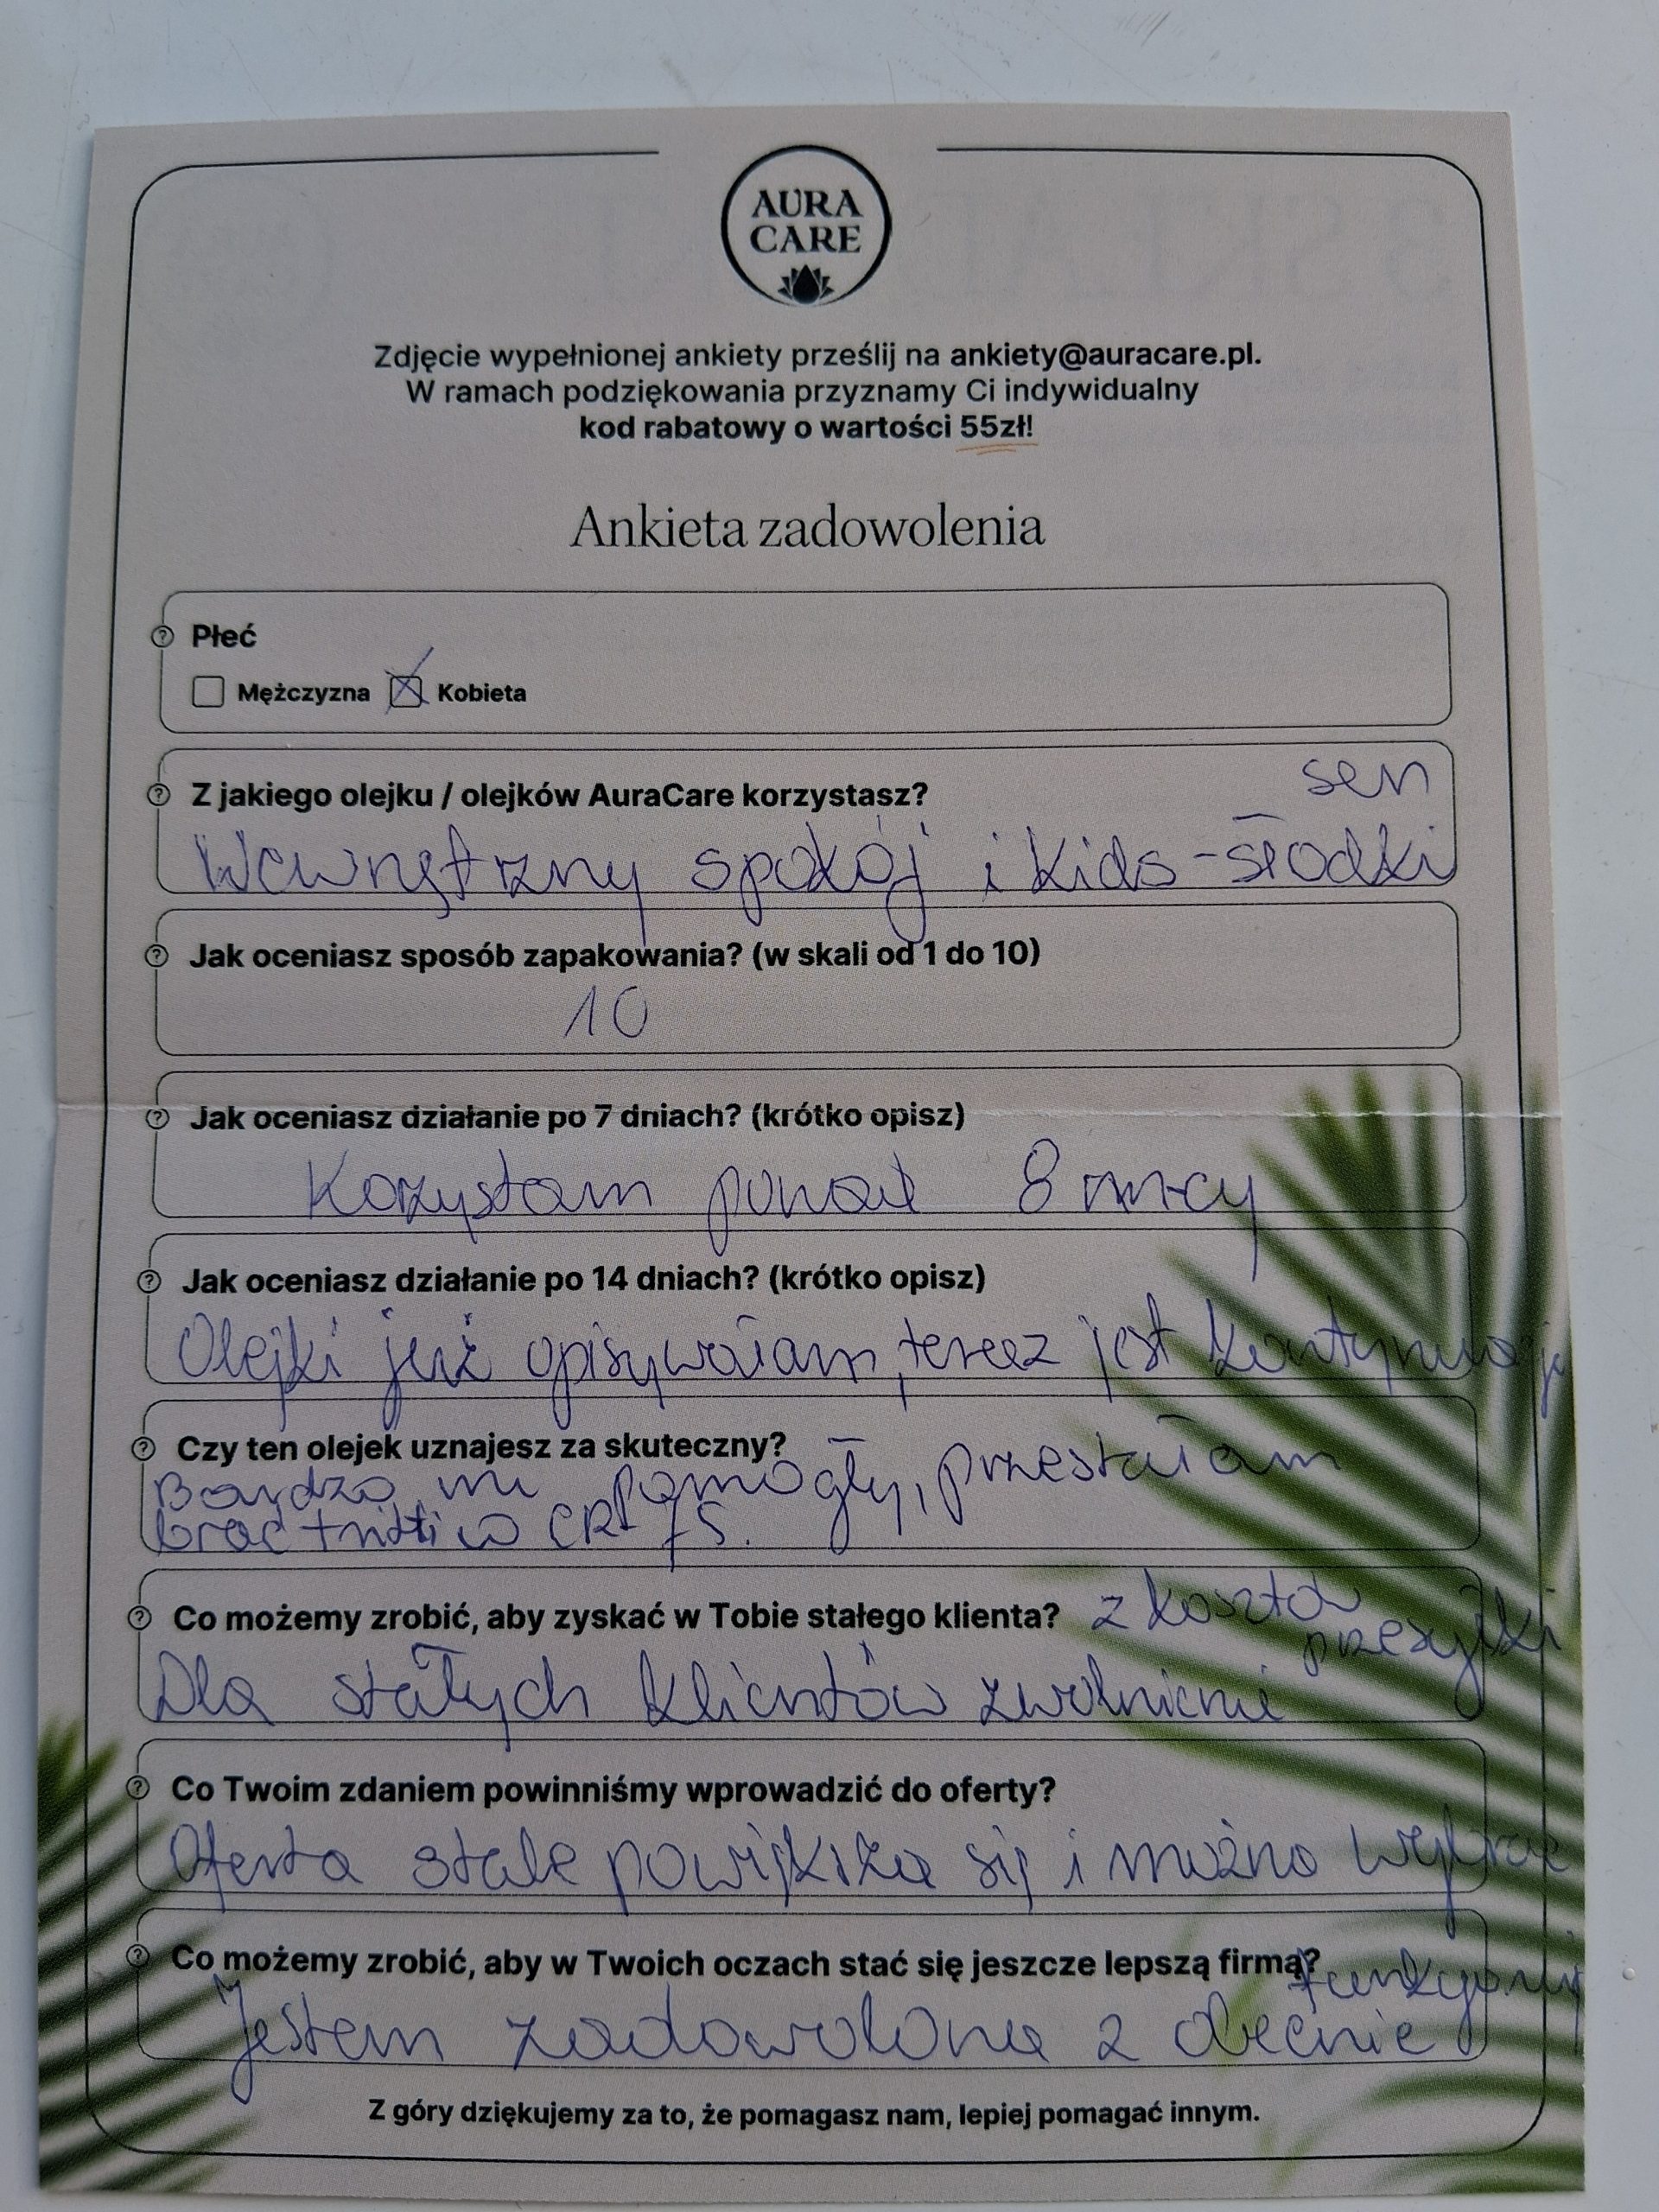 AURA
CARE
Zdjęcie wypełnionej ankiety prześlij na ankiety@auracare.pl.
W ramach podziękowania przyznamy Ci indywidualny
kod rabatowy o wartości 55zł!
Ankieta zadowolenia
Płeć
Mężczyzna Kobieta
Z jakiego olejku / olejków AuraCare korzystasz?
Wewnętrzny spokój i Kids - słodki
sen
Jak oceniasz sposób zapakowania? (w skali od 1 do 10)
10
Jak oceniasz działanie po 7 dniach? (krótko opisz)
Korzystam ponad 8 m-cy
Jak oceniasz działanie po 14 dniach? (krótko opisz)
Olejki już opisywałam, teraz jest kontynuacja
Czy ten olejek uznajesz za skuteczny?
Bardzo mi pomogły, przestałam
brać CR 75.
Co możemy zrobić, aby zyskać w Tobie stałego klienta?
Dla stałych klientów zwolnienie
z kosztów
przesyłki
Co Twoim zdaniem powinniśmy wprowadzić do oferty?
Oferta stale powiększa się i można wybrać
Co możemy zrobić, aby w Twoich oczach stać się jeszcze lepszą firmą?
Jestem zadowolona z obecnie
Z góry dziękujemy za to, że pomagasz nam, lepiej pomagać innym.